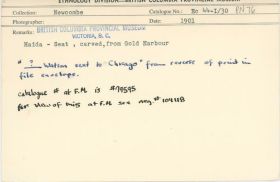 ETHNOLOGY DIVISION—BRITISH COLUMBIA PROVINCIAL MUSEUM
Collection: Newcombe Catalogue No.: PN 76
Photographer: Date: 1901
Remarks: BRITISH COLUMBIA PROVINCIAL MUSEUM
VICTORIA, B. C.
Haida - Seat , carved, from Gold Harbour
" ? sent to Chicago" from reverse of print in
file envelope.
catalogue # at F.M. is #79595
for view of this at F.M. see neg.# 104118